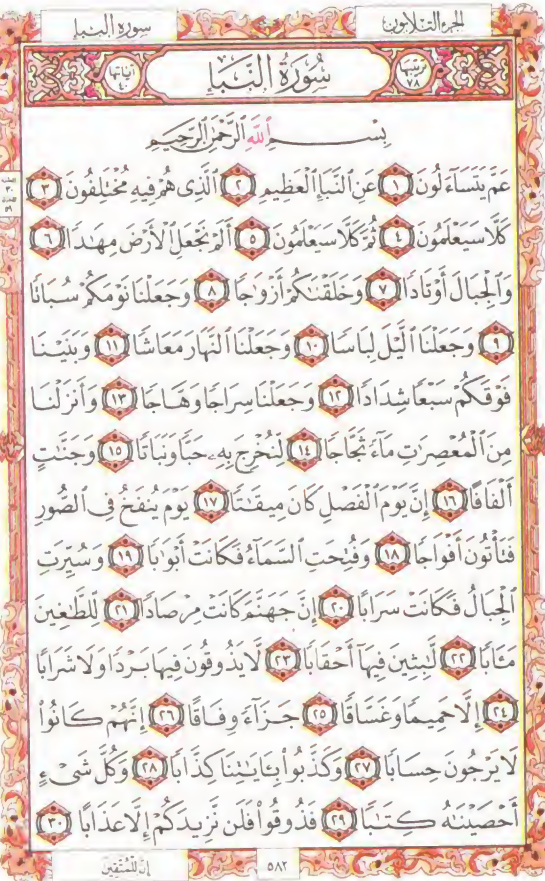 الجزء الثلاثون سورة النبإ
ترتيبها ٧٨ سُورَةُ النَّبَإِ آياتها ٤٠
بِسْمِ اللَّهِ الرَّحْمَٰنِ الرَّحِيمِ
عَمَّ يَتَسَاءَلُونَ ١ عَنِ النَّبَإِ الْعَظِيمِ ٢ الَّذِي هُمْ فِيهِ مُخْتَلِفُونَ ٣
كَلَّا سَيَعْلَمُونَ ٤ ثُمَّ كَلَّا سَيَعْلَمُونَ ٥ أَلَمْ نَجْعَلِ الْأَرْضَ مِهَٰدًا ٦
وَالْجِبَالَ أَوْتَادًا ٧ وَخَلَقْنَٰكُمْ أَزْوَٰجًا ٨ وَجَعَلْنَا نَوْمَكُمْ سُبَاتًا
٩ وَجَعَلْنَا الَّيْلَ لِبَاسًا ١٠ وَجَعَلْنَا النَّهَارَ مَعَاشًا ١١ وَبَنَيْنَا
فَوْقَكُمْ سَبْعًا شِدَادًا ١٢ وَجَعَلْنَا سِرَاجًا وَهَّاجًا ١٣ وَأَنزَلْنَا
مِنَ الْمُعْصِرَٰتِ مَاءً ثَجَّاجًا ١٤ لِّنُخْرِجَ بِهِ حَبًّا وَنَبَاتًا ١٥ وَجَنَّٰتٍ
أَلْفَافًا ١٦ إِنَّ يَوْمَ الْفَصْلِ كَانَ مِيقَٰتًا ١٧ يَوْمَ يُنفَخُ فِي الصُّورِ
فَتَأْتُونَ أَفْوَاجًا ١٨ وَفُتِحَتِ السَّمَاءُ فَكَانَتْ أَبْوَٰبًا ١٩ وَسُيِّرَتِ
الْجِبَالُ فَكَانَتْ سَرَابًا ٢٠ إِنَّ جَهَنَّمَ كَانَتْ مِرْصَادًا ٢١ لِّلطَّٰغِينَ
مَـَٔابًا ٢٢ لَّٰبِثِينَ فِيهَا أَحْقَابًا ٢٣ لَّا يَذُوقُونَ فِيهَا بَرْدًا وَلَا شَرَابًا
٢٤ إِلَّا حَمِيمًا وَغَسَّاقًا ٢٥ جَزَاءً وِفَاقًا ٢٦ إِنَّهُمْ كَانُوا
لَا يَرْجُونَ حِسَابًا ٢٧ وَكَذَّبُوا بِـَٔايَٰتِنَا كِذَّابًا ٢٨ وَكُلَّ شَيْءٍ
أَحْصَيْنَٰهُ كِتَٰبًا ٢٩ فَذُوقُوا فَلَن نَّزِيدَكُمْ إِلَّا عَذَابًا ٣٠
٥٨٢ إِنَّ لِلْمُتَّقِينَ